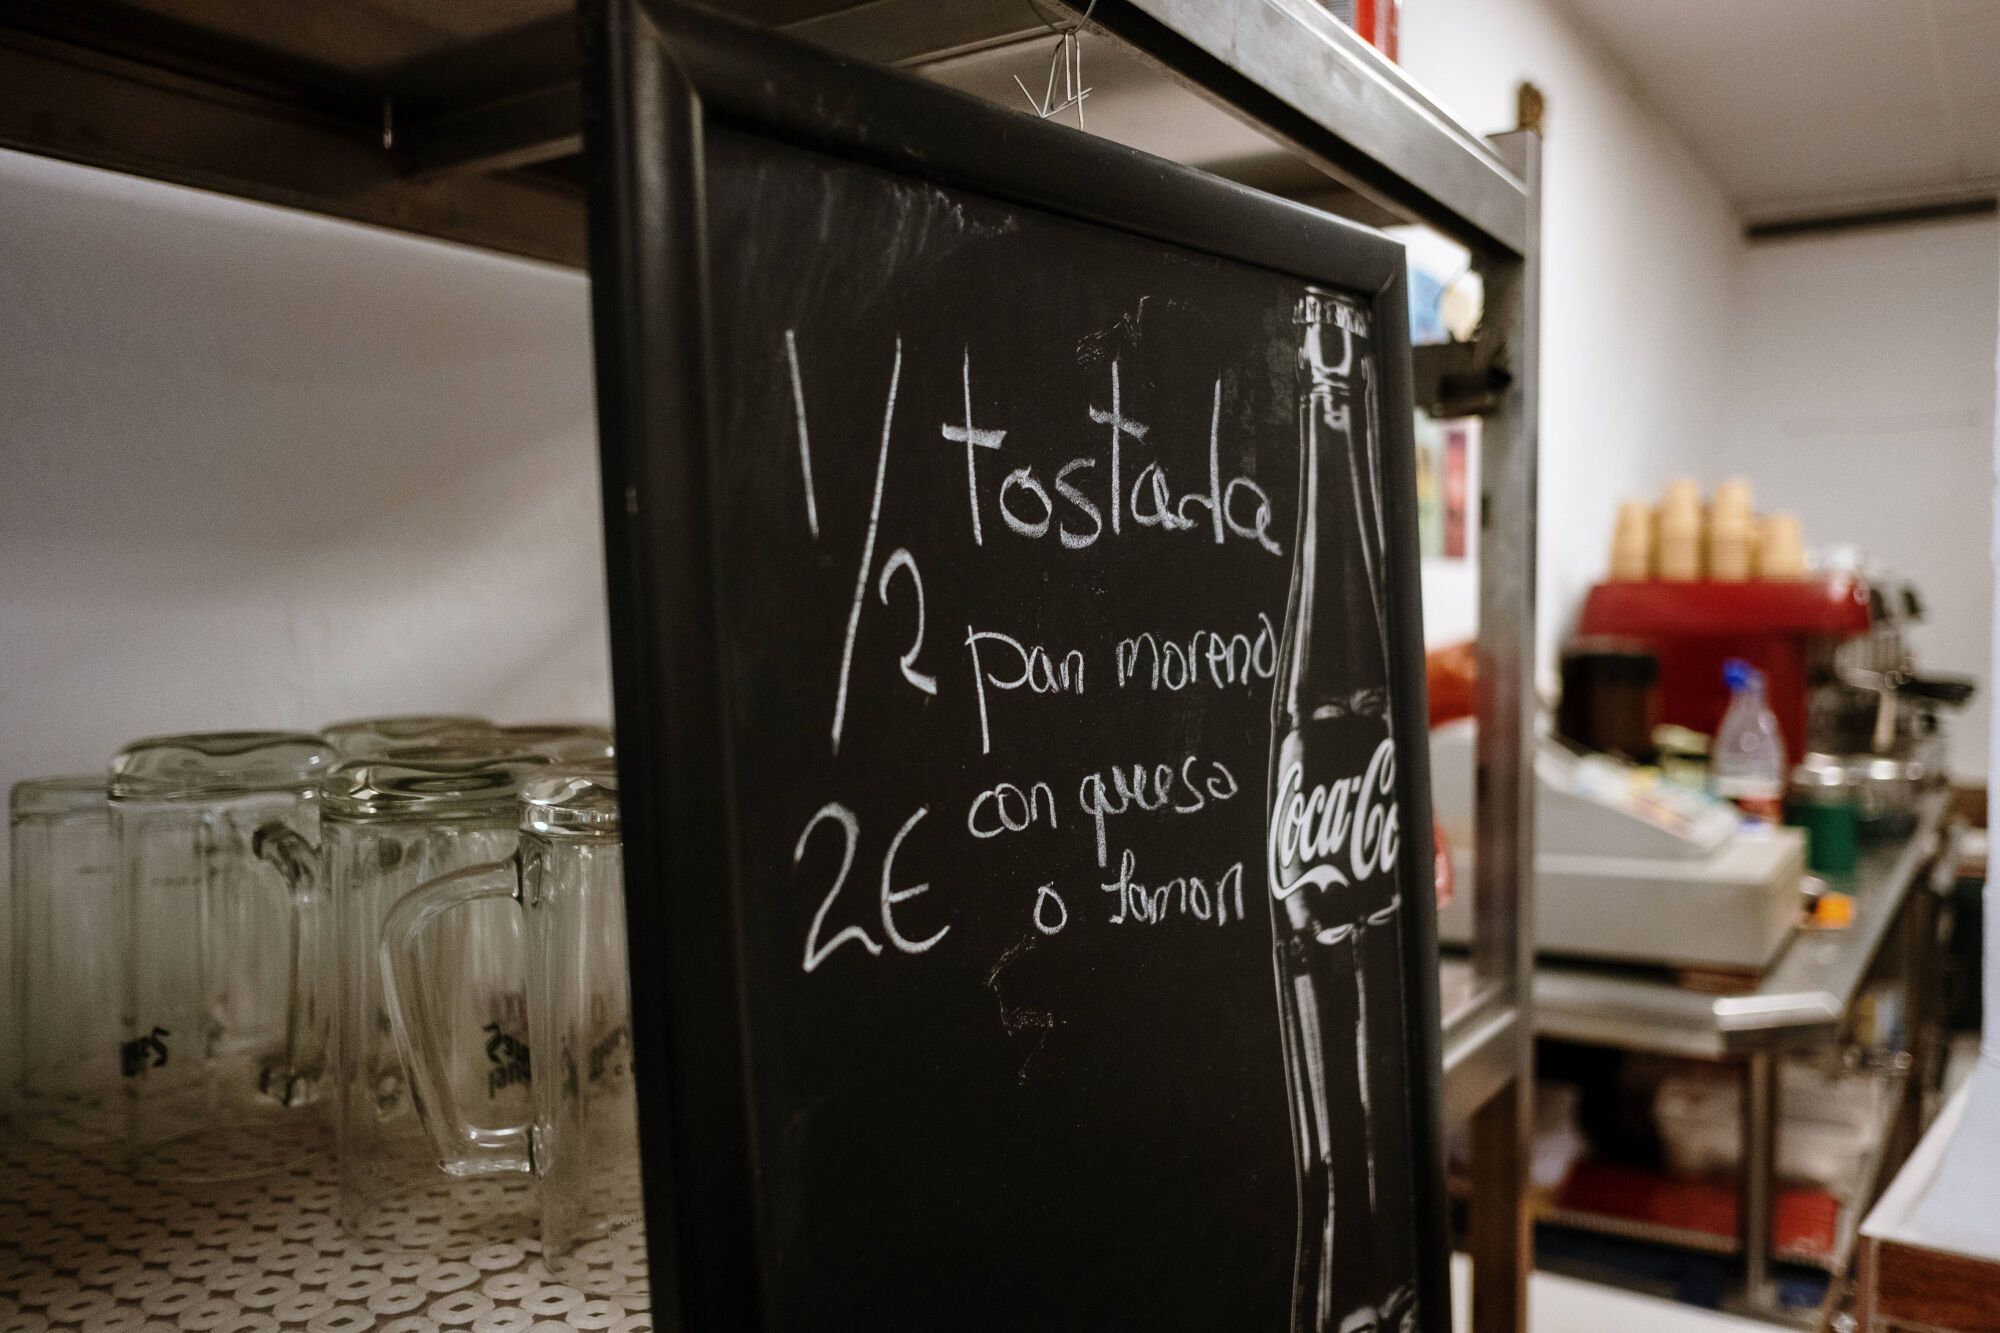 1/2 tostada
pan moreno
2€ con queso
o Jamon
Coca-Co